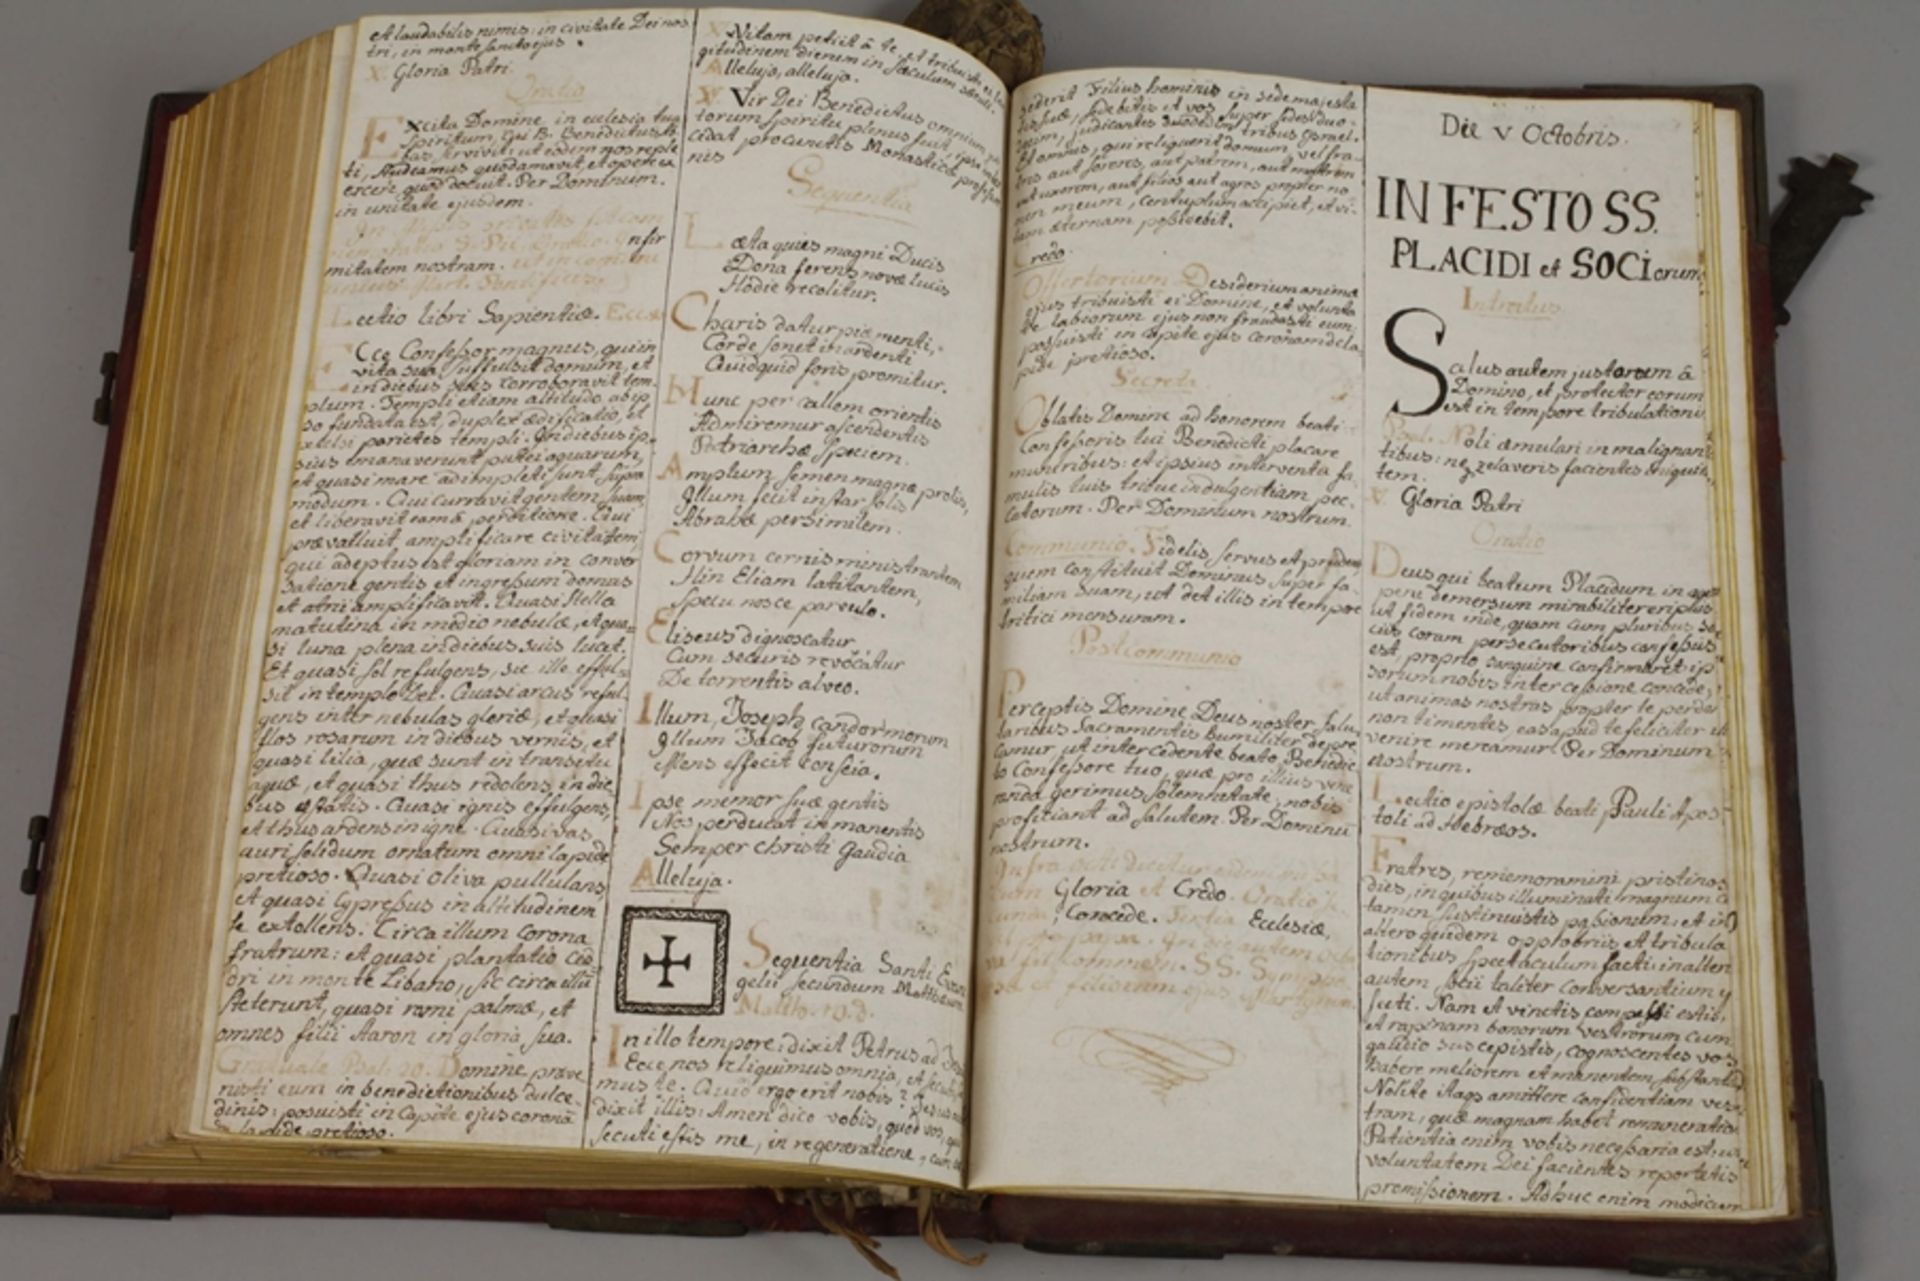 et laudabilis nimis: in civitate Dei nos
tri, in monte sancto ejus.
V. Gloria Patri.
Oratio
Excita Domine in eclesia tua
Spiritum, cui B. Benedictus Ab
bas servivit: ut eodem nos reple
ti, studeamus quod amavit, et opere ex
erceri quod docuit. Per Dominum.
in unitate ejusdem.
Oratio. Infir
mitatem nostram. ut in comuni
unius Mart. Pontificis
Lectio libri Sapientiæ. Eccli
Ecce Confessor magnus, qui in
vita sua suffulsit domum, et
in diebus suis corroboravit tem
plum. Templi etiam altitudo ab ip
so fundata est, duplex ædificatio, et
excelsi parietes templi. In diebus ip
sius emanaverunt putei aquarum,
et quasi mare adimpleti sunt supra
modum. Qui curravit gentem suam,
et liberavit eam à perditione. Qui
prævaluit amplificare civitatem,
qui adeptus est gloriam in conver
satione gentis et ingressum domus
et atrii amplificavit. Quasi stella
matutina in medio nebulæ, et qua
si luna plena in diebus suis lucet.
Et quasi sol refulgens, sic ille efful
sit in templo Dei. Quasi arcus reful
gens inter nebulas gloriæ, et quasi
flos rosarum in diebus vernis, et
quasi lilia, quæ sunt in transitu
aquæ, et quasi thus redolens in die
bus æstatis. Quasi ignis effulgens,
et thus ardens in igne. Quasi vas
auri solidum ornatum omni lapide
pretioso. Quasi oliva pullulans,
et quasi cypressus in altitudinem
se extollens. Circa illum corona
fratrum: et quasi plantatio ced
dri in monte Libano, sic circa illū
steterunt, quasi rami palmæ, et
omnes filii Aaron in gloria sua.
Graduale Psal. 20. Domine, præve
nisti eum in benedictionibus dulce
dinis: posuisti in capite ejus coronā
de lapide pretioso.
V. Vitam petiit à te, et tribuisti ei lon
gitudinem dierum in sæculum sæculi.
Alleluja, alleluja.
V. Vir Dei Benedictus omnium jus
torum spiritu plenus fuit, ipse inter
cedat pro cunctis Monasticæ profess
nis
Sequentia
Læta quies magni Ducis
Dona ferens novæ lucis
Hodie recolitur.
Charis datur piæ menti,
Corde sonet in ardenti
Quidquid foris promitur.
Hunc per callem orientis
Admiremur ascendentis
Patriarchæ speciem.
Amplum semen magnæ prolis,
Illum fecit instar solis
Abrahæ persimilem.
Corvum cernis ministrantem
Hin Eliam latitantem,
Specu nosce parvulo.
Eliseus dignoscatur
Cum securis revocatur
De torrentis alveo.
Illum, Joseph candor morum
Illum Jacob futurorum
Mens effecit conscia.
Ipse memor suæ gentis
Nos perducat in manentis
Semper Christi Gaudia
Alleluja.
Sequentia Sancti Evan
gelii secundum Matthæum
Matth. 19. d.
In illo tempore: dixit Petrus ad Jesu
Ecce nos reliquimus omnia, et secuti
mus te. Quid ergo erit nobis? Jesus au
dixit illis: Amen dico vobis, quod vos, qui
secuti estis me, in regeneratione, cum
sederit Filius hominis in sede majesta
tis suæ, sedebitis et vos super sedes duo
decim, judicantes duodecim tribus Israel.
Et omnis, qui reliquerit domum, vel fra
tres aut sorores, aut patrem, aut matrem
aut uxorem, aut filios aut agros propter no
men meum, centuplum accipiet, et vi
tam æternam possidebit.
Credo.
Offertorium Desiderium animæ
ejus tribuisti ei Domine, et volunta
te labiorum ejus non fraudasti eum:
posuisti in capite ejus coronam de la
pide pretioso.
Secreta
Oblatis Domine ad honorem beati
Confessoris tui Benedicti placare
muneribus: et ipsius interventu fa
mulis tuis tribue indulgentiam pec
catorum. Per Dominum nostrum.
Communio. Fidelis servus et prudens,
quem constituit Dominus super fa
miliam suam, ut det illis in tempore
tritici mensuram.
Postcommunio
Perceptis Domine Deus noster salu
taribus Sacramentis humiliter depre
camur ut intercedente beato Benedic
to Confessore tuo, quæ pro illius vene
randa gerimus solemnitate, nobis
proficiant ad salutem. Per Dominū
nostrum.
Infra oct: dicitur eadem missa
cum Gloria et Credo. Oratio se
cunda, Concede. Tertia Ecclesiæ,
vel pro papa. In die autem octa
va fit comem. SS. Sympho
sæ et filiorum ejus Martyrum
Die V Octobris.
IN FESTO SS.
PLACIDI et SOCIorum
Introitus
Salus autem justorum à
Domino, et protector eorum
est in tempore tribulationis.
Psal. Noli æmulari in malignan
tibus: neq zelaveris facientes iniquita
tem.
V. Gloria Patri
Oratio
Deus qui beatum Placidum in
demersum mirabiliter eripuis
ut fidem inde, quam cum pluribus so
ciis coram persecutoribus confessus
est, proprio sanguine confirmaret: ip
sorum nobis intercessione concede,
ut animas nostras propter te perde
non timentes, eas apud te feliciter in
venire mereamur. Per Dominum
nostrum.
Lectio epistolæ beati Pauli Apos
toli ad Hebræos.
Fratres, rememoramini pristinos
dies, in quibus illuminati magnum c
tamen sustinuistis passionum: et in
altero quidem opprobriis et tribula
tionibus spectaculum facti: in alter
autem, socii taliter conversantium
facti. Nam et vinctis compassi estis,
et rapinam bonorum vestrorum cum
gaudio suscepistis, cognoscentes vos
habere meliorem et manentem substantiā
Nolite itaq amittere confidentiam ves
tram, quæ magnam habet remuneration
Patientia enim vobis necessaria est: ut
voluntatem Dei facientes reportetis
promissionem. Adhuc enim modicum